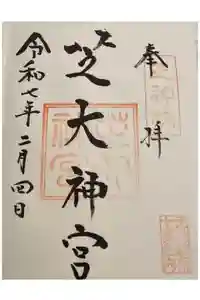 奉拝
芝大神宮
令和七年二月四日